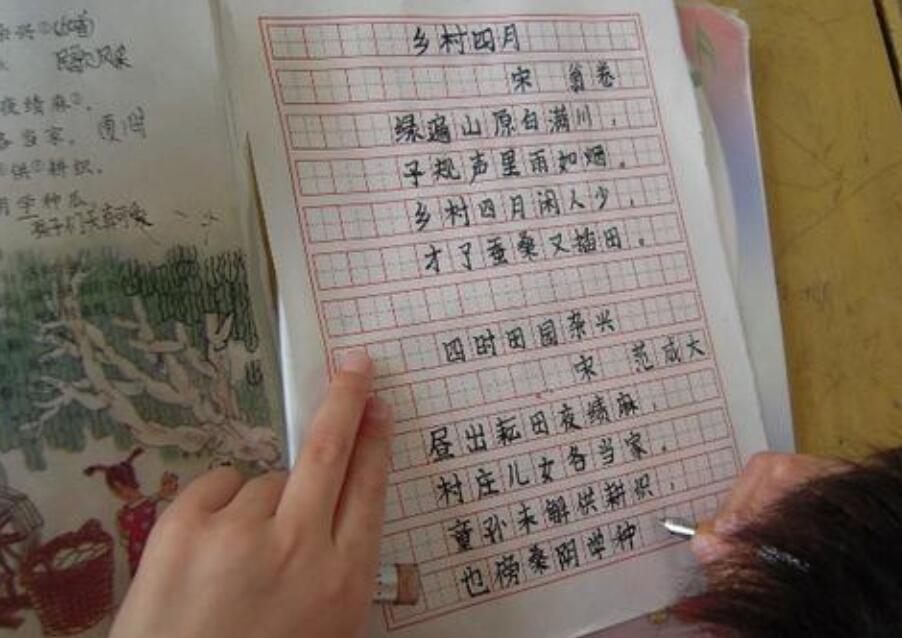 杂兴
民歌风采
夜绩麻②。
各当家。
供⑤耕织。
学种瓜。
乡村四月
宋 翁卷
绿遍山原白满川,
子规声里雨如烟。
乡村四月闲人少,
才了蚕桑又插田。
四时田园杂兴
宋 范成大
昼出耘田夜绩麻,
村庄儿女各当家。
童孙未解供耕织,
也傍桑阴学种